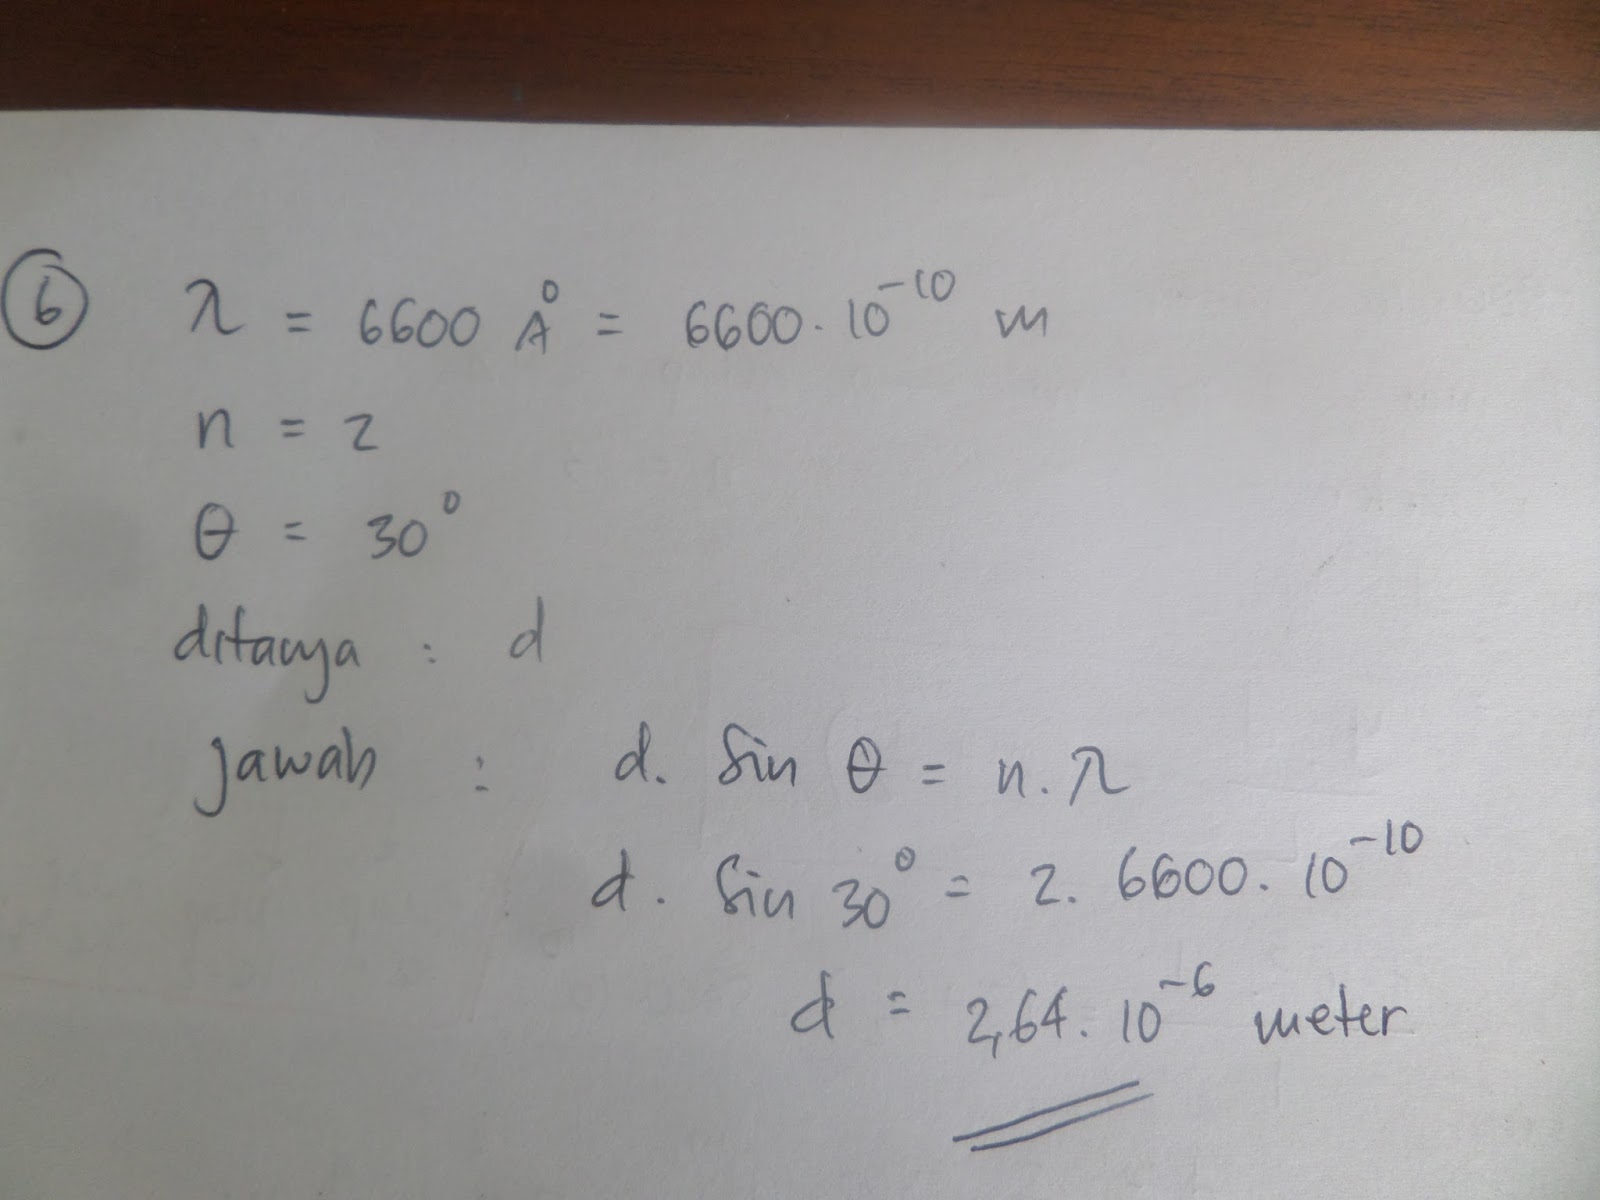 6 λ = 6600 Å = 6600 . 10⁻¹⁰ m
n = 2
θ = 30°
ditanya : d
jawab : d. sin θ = n . λ
d . sin 30° = 2. 6600. 10⁻¹⁰
d = 2,64. 10⁻⁶ meter